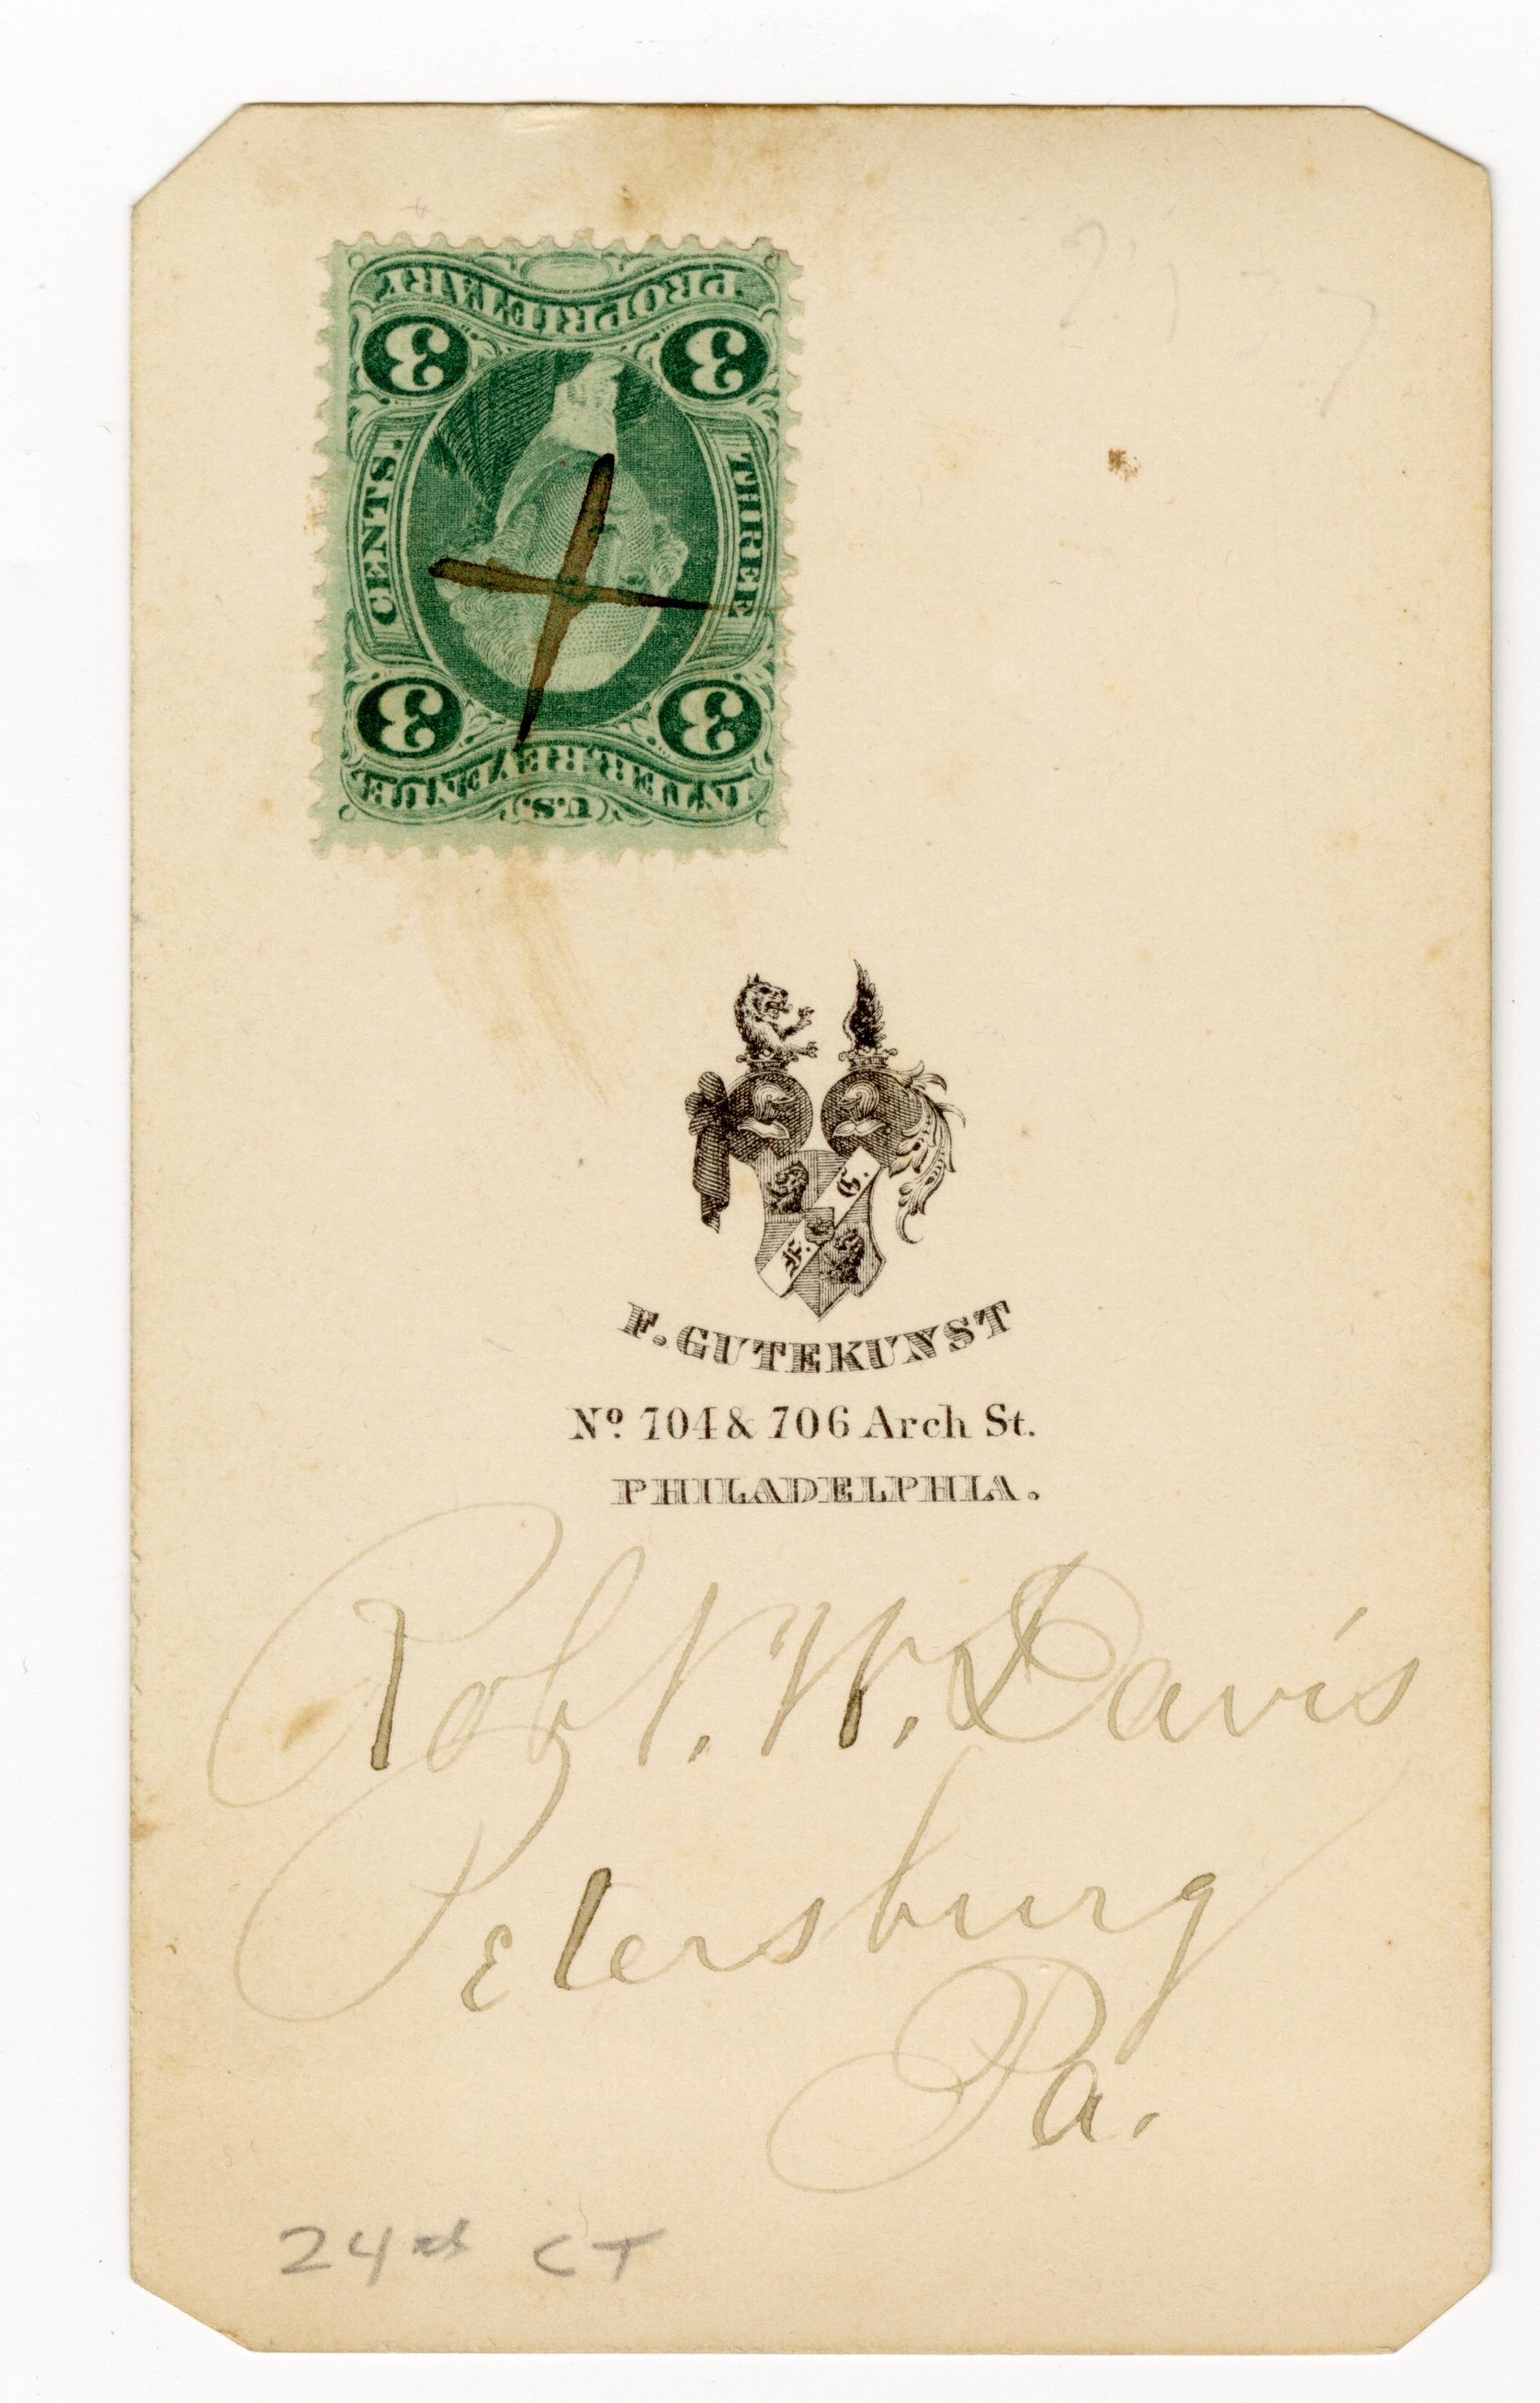 PROPRIETARY
3 3
THREE
CENTS.
3 3
INTER. REVENUE
U.S.
F. G.
F. GUTEKUNST
No. 704 & 706 Arch St.
PHILADELPHIA.
Robt. W. Davis
Petersburg
Pa.
24th CT